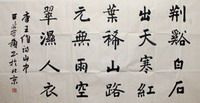 荆谿白石
出天寒紅
葉稀山路
元無雨空
翠濕人衣
唐王维诗山中
书於北京